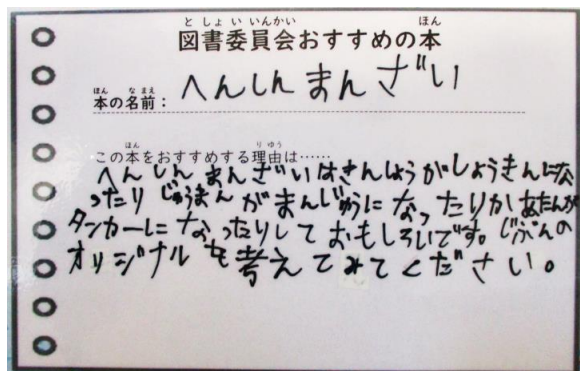 図書委員会おすすめの本
本の名前：へんしんまんざい
この本をおすすめする理由は……
へんしんまんざいはきんしょうがしょうきんにな
ったりじゅうまんがまんじゅうになったりかあたんが
タンカーになったりしておもしろいです。じぶんの
オリジナルを考えてみてください。